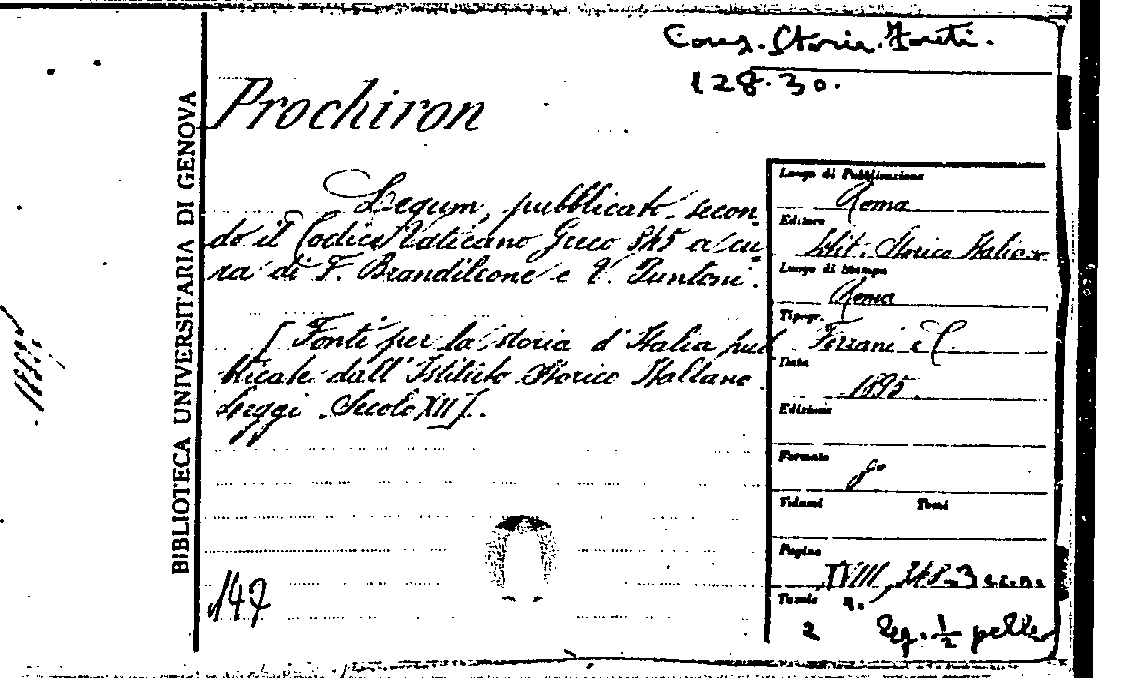 Cons. Storia. Fonti.
128.30.
BIBLIOTECA UNIVERSITARIA DI GENOVA
Prochiron
Legum, pubblicato secon
do il Codice Vaticano Greco 845 a cu
ra di F. Brandileone e V. Puntoni.
[Fonti per la storia d'Italia pub
blicate dall'Istituto Storico Italiano.
Leggi. Secolo XII].
147
Luogo di Pubblicazione
Roma
Editore
Istit. Storico Italiano
Luogo di stampa
Roma
Tipogr.
Forzani e C.
Data
1895.
Edizione
Formato
8°
Volumi Tomi
Pagine
XVIII, 348
Tavole
2
Leg. ½ pelle